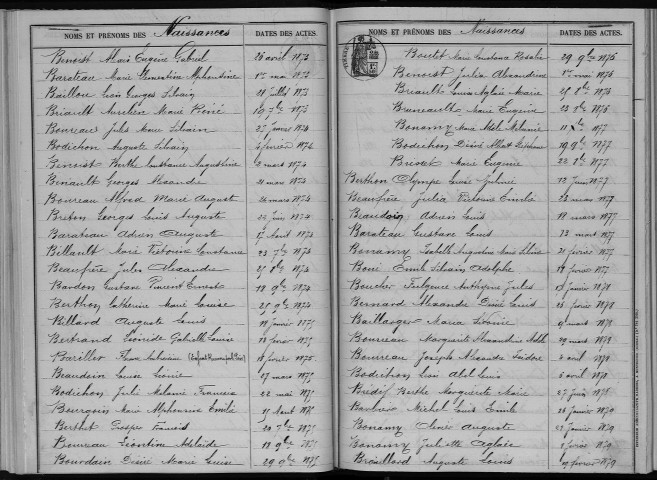 NOMS ET PRÉNOMS DES Naissances DATES DES ACTES.
Benoist Alais Eugène Gabriel 26 avril 1873
Barateau Marie Florentine Alphonsine 1er mai 1873
Baillou Léon Georges Silvain 28 juillet 1873
Briault Aurélien Marie Réné 19 7bre 1873
Bonneau Jules Marie Silvain 25 janvier 1874
Bodichon Auguste Silvain 4 février 1874
Benoist Berthe Constance Augustine 2 mars 1874
Benault Georges Alexandre 21 mars 1874
Bonneau Alfred Marie Auguste 24 mars 1874
Breton Georges Louis Auguste 23 juin 1874
Barateau Adrien Auguste 17 Août 1874
Billault Marie Victoire Constance 23 7bre 1874
Beaufrère Jules Alexandre 25 8bre 1874
Bardon Gustave Vincent Ernest 18 9bre 1874
Berthon Catherine Marie Louise 25 9bre 1874
Billard Auguste Louis 19 janvier 1875
Bertrand Léonide Gabrielle Louise 13 février 1875
Barillier 18 février 1875
Beaudoin Louise Léonie 27 mars 1875
Bodichon Julie Mélanie Francia 22 mai 1875
Bourgoin Marie Alphonsine Emilie 11 Août 1875
Berthet Prosper Francis 20 7bre 1875
Bonneau Léontine Adelaïde 13 9bre 1875
Bourdain Désiré Marie Louise 29 9bre 1875
NOMS ET PRÉNOMS DES Naissances DATES DES ACTES.
Boutet Marie Constance Rosalie 29 9bre 1876
Benoist Julia Alexandrine 1er mai 1876
Briault Louise Aglaé Marie 25 8bre 1876
Buneault Marie Eugénie 23 8bre 1876
Bonamy Marie Adèle Mélanie 11 Xbre 1877
Bodichon Désiré Albert 19 9bre 1877
Brisset Marie Eugénie 22 8bre 1877
Berthon Olympe Louise Juliene 12 juin 1877
Beaufrère Julia Victoire Emilie 23 mars 1877
Beaudoin Adrien Louis 18 mars 1877
Barateau Gustave Louis 13 mars 1877
Bonamy Isabelle Augustine Marie 21 février 1877
Boué Emile Silvain Adolphe 18 février 1877
Boucher Fulgence Anthyme Jules 17 janvier 1878
Bernard Alexandre Désiré Louis 25 février 1878
Baillarger Maria Léonie 9 mars 1878
Bonneau Marguerite Alexandrine 29 mars 1878
Bonneau Joseph Alexandre Isidore 4 avril 1878
Bodichon Léon Abel Louis 5 avril 1878
Brédif Berthe Marguerite Marie 27 juin 1878
Barbier Michel Louis Emile 28 janvier 1879
Bonamy Clovis Auguste 22 janvier 1879
Bonamy Juliette Aglaée 2 février 1879
Brouillard Auguste Louis 19 février 1879